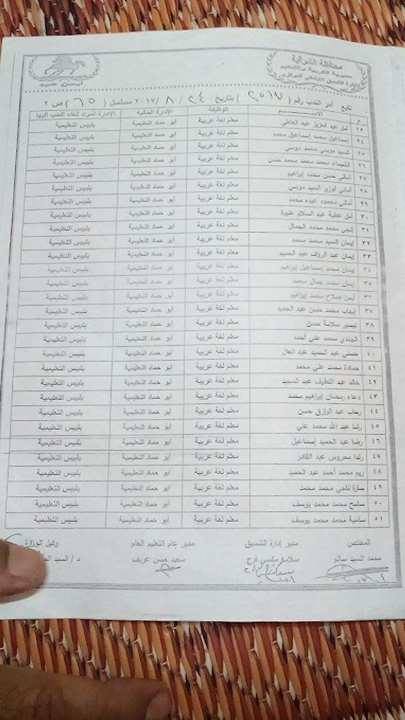 محافظة الشرقية
مديرية التربية والتعليم
تابع أمر الندب رقم ( ٢٥٦٧ ) بتاريخ ٢٤ / ٨ / ٢٠١٧ مسلسل ( ٦٥ ) ص ٢
م الاســـم الوظيفة الإدارة الحالية
٢٣ أمل عبد العزيز عبد العاطي معلم لغة عربية أبو حماد التعليمية بلبيس التعليمية
٢٤ إسماعيل محمد إسماعيل محمد معلم لغة عربية أبو حماد التعليمية بلبيس التعليمية
٢٥ السيد موسى محمد موسى معلم لغة عربية أبو حماد التعليمية بلبيس التعليمية
٢٦ الشيماء محمد محمد محمد حسن معلم لغة عربية أبو حماد التعليمية بلبيس التعليمية
٢٧ أماني حسن محمد إبراهيم معلم لغة عربية أبو حماد التعليمية بلبيس التعليمية
٢٨ أماني السيد موسى معلم لغة عربية أبو حماد التعليمية بلبيس التعليمية
٢٩ أماني محمود عبده محمد معلم لغة عربية أبو حماد التعليمية بلبيس التعليمية
٣٠ أمل عطية عبد السلام معلم لغة عربية أبو حماد التعليمية بلبيس التعليمية
٣١ محمد محمد الجمال معلم لغة عربية أبو حماد التعليمية بلبيس التعليمية
٣٢ إيمان السيد محمد محمد معلم لغة عربية أبو حماد التعليمية بلبيس التعليمية
٣٣ إيمان عبد الرؤف عبد الحميد معلم لغة عربية أبو حماد التعليمية بلبيس التعليمية
٣٤ إيمان محمد إسماعيل إبراهيم معلم لغة عربية أبو حماد التعليمية بلبيس التعليمية
٣٥ إيمان محمد جمال محمد معلم لغة عربية أبو حماد التعليمية بلبيس التعليمية
٣٦ أيمن صلاح محمد إبراهيم معلم لغة عربية أبو حماد التعليمية بلبيس التعليمية
٣٧ إيهاب محمد حسن عبد الحميد معلم لغة عربية أبو حماد التعليمية بلبيس التعليمية
٣٨ تيسير سلامة حسن معلم لغة عربية أبو حماد التعليمية بلبيس التعليمية
٣٩ الجندي محمد علي أحمد معلم لغة عربية أبو حماد التعليمية بلبيس التعليمية
٤٠ حسني عبد الحميد عبد العال معلم لغة عربية أبو حماد التعليمية بلبيس التعليمية
٤١ حمادة محمد علي محمد معلم لغة عربية أبو حماد التعليمية بلبيس التعليمية
٤٢ خالد عبد اللطيف عبد السميد معلم لغة عربية أبو حماد التعليمية بلبيس التعليمية
٤٣ دعاء رمضان إبراهيم محمد معلم لغة عربية أبو حماد التعليمية بلبيس التعليمية
٤٤ رحاب عبد الرازق حسن معلم لغة عربية أبو حماد التعليمية بلبيس التعليمية
٤٥ رشا عبد الله محمد علي معلم لغة عربية أبو حماد التعليمية بلبيس التعليمية
٤٦ رضا عبد الحميد إسماعيل معلم لغة عربية أبو حماد التعليمية بلبيس التعليمية
٤٧ رشا محروس عبد القادر معلم لغة عربية أبو حماد التعليمية بلبيس التعليمية
٤٨ ريم محمد أحمد عبد الحميد معلم لغة عربية أبو حماد التعليمية بلبيس التعليمية
٤٩ سارة ناجي محمد محمد معلم لغة عربية أبو حماد التعليمية بلبيس التعليمية
٥٠ سامح محمد محمد يوسف معلم لغة عربية أبو حماد التعليمية بلبيس التعليمية
٥١ سامية محمد محمد يوسف معلم لغة عربية أبو حماد التعليمية بلبيس التعليمية
المختص مدير إدارة التنسيق مدير عام التعليم العام وكيل الوزارة
محمد السيد سالم فرج سعيد حسن عريف د / السيد